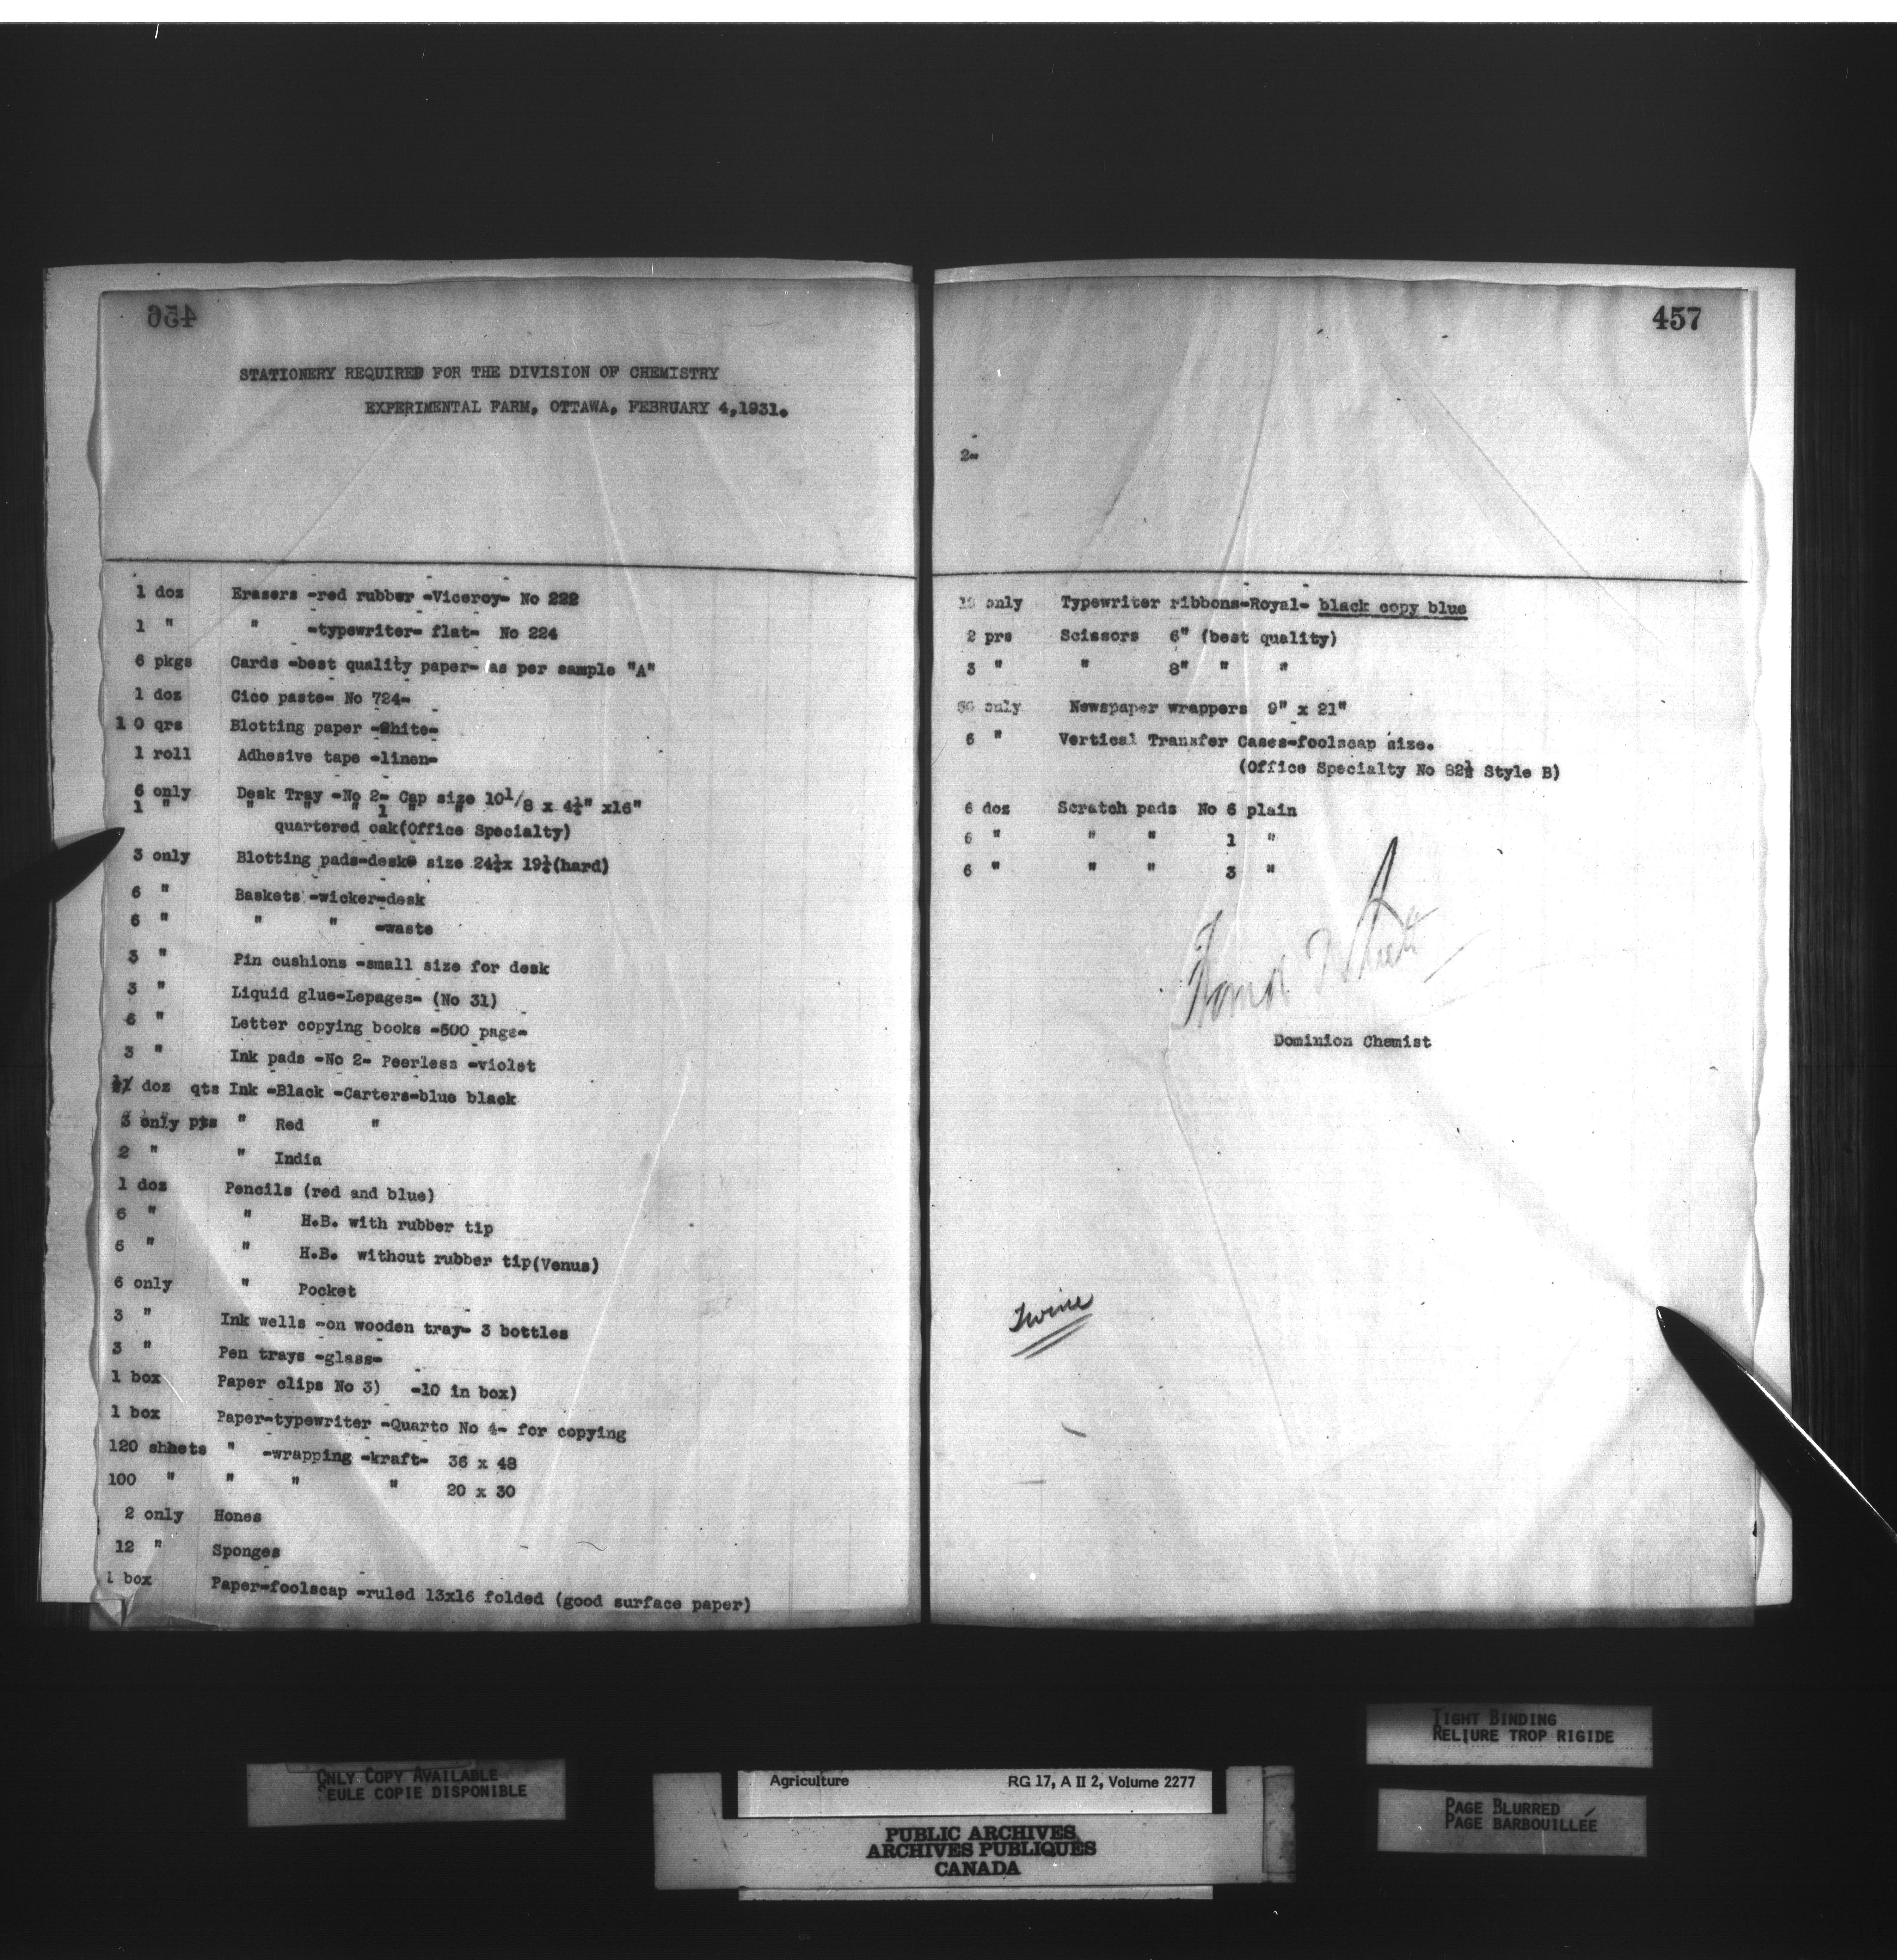 456
STATIONERY REQUIRED FOR THE DIVISION OF CHEMISTRY
EXPERIMENTAL FARM, OTTAWA, FEBRUARY 4,1931.
1 doz Erasers -red rubber -Viceroy- No 222
1 " " -typewriter- flat- No 224
6 pkgs Cards -best quality paper- as per sample "A"
1 doz Cico paste- No 724-
1 0 qrs Blotting paper -White-
1 roll Adhesive tape -linen-
6 only Desk Tray -No 2- Cap size 10 1/8 x 4½" x16"
1 " " " " 1 " "
quartered oak(Office Specialty)
3 only Blotting pads-desk size 24½x 19½(hard)
6 " Baskets -wicker-desk
6 " " " -waste
3 " Pin cushions -small size for desk
3 " Liquid glue-Lepages- (No 31)
6 " Letter copying books -500 page-
3 " Ink pads -No 2- Peerless -violet
doz qts Ink -Black -Carters-blue black
3 only pts " Red "
2 " " India
1 doz Pencils (red and blue)
6 " " H.B. with rubber tip
6 " " H.B. without rubber tip(Venus)
6 only " Pocket
3 " Ink wells -on wooden tray- 3 bottles
3 " Pen trays -glass-
1 box Paper clips No 3) -10 in box)
1 box Paper-typewriter -Quarto No 4- for copying
120 shhets " -wrapping -kraft- 36 x 48
100 " " " " 20 x 30
2 only Hones
12 " Sponges
1 box Paper-foolscap -ruled 13x16 folded (good surface paper)
457
2-
only Typewriter ribbons-Royal- black copy blue
2 prs Scissors 6" (best quality)
3 " " 8" " "
only Newspaper wrappers 9" x 21"
6 " Vertical Transfer Cases-foolscap size.
(Office Specialty No 82½ Style B)
6 doz Scratch pads No 6 plain
6 " " " 1 "
6 " " " 3 "
Dominion Chemist
Twine
TIGHT BINDING
RELIURE TROP RIGIDE
ONLY COPY AVAILABLE
SEULE COPIE DISPONIBLE
Agriculture RG 17, A II 2, Volume 2277
PAGE BLURRED
PAGE BARBOUILLÉE
PUBLIC ARCHIVES
ARCHIVES PUBLIQUES
CANADA